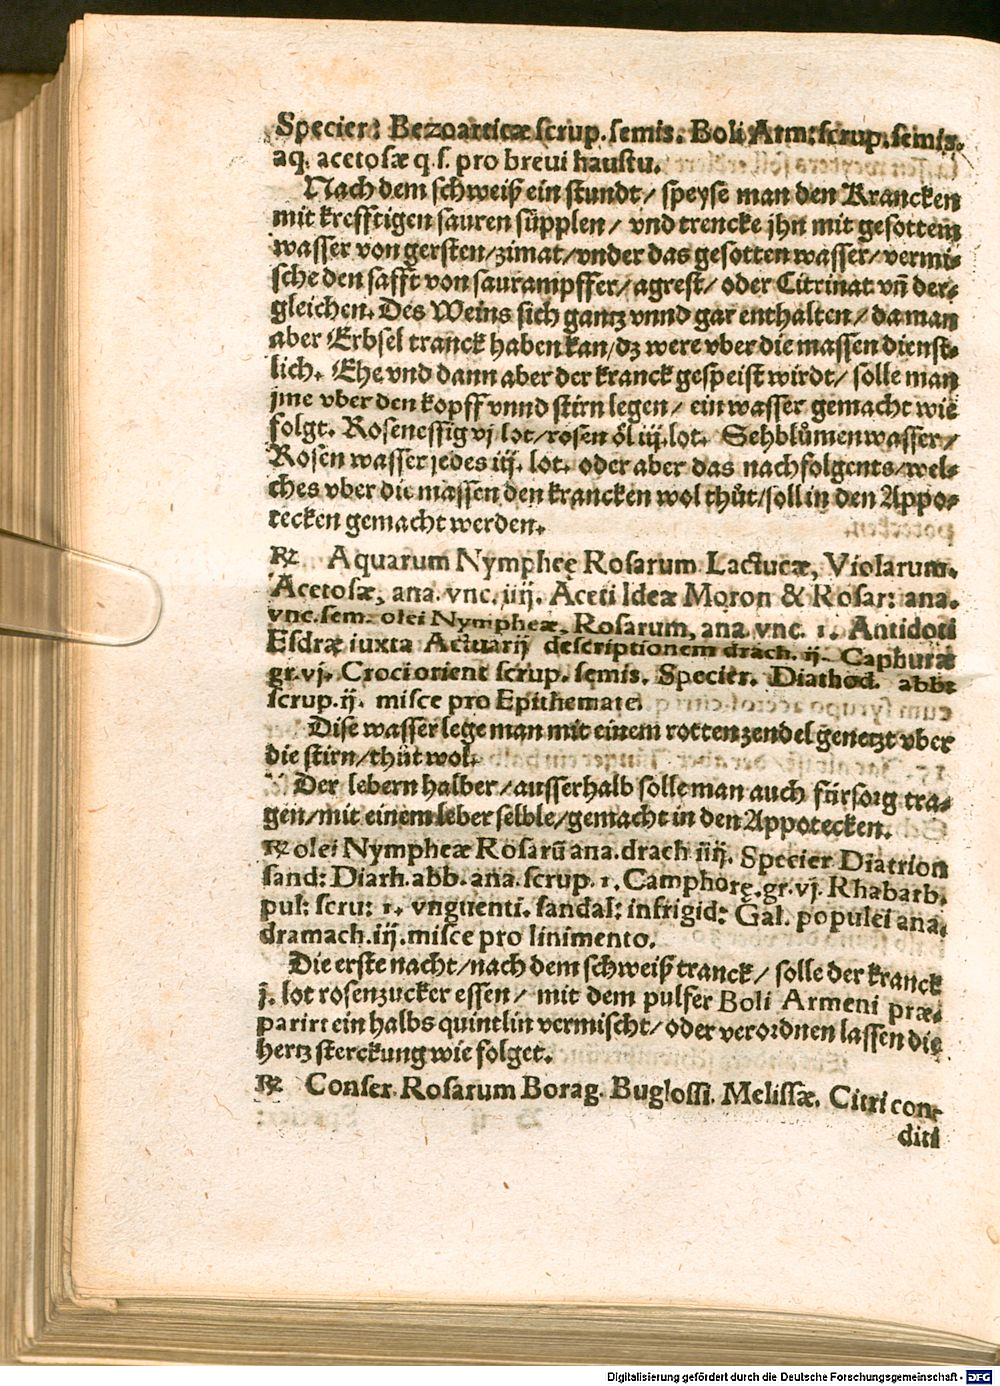 Specier: Bezoarticæ scrup. semis. Boli Arm: scrup. semis.
aq. acetosæ q.s. pro breui haustu.
Nach dem schweiß ein stundt/ speyse man den Krancken
mit krefftigen sauren süpplen/ vnd trencke jhn mit gesottem
wasser von gersten/zimat/vnder das gesotten wasser/vermi-
sche den safft von saurampffer/agrest/ oder Citrinat vñ der-
gleichen. Des Weins sich gantz vnnd gar enthalten/ da man
aber Erbsel tranck haben kan/dz were vber die massen dienst-
lich. Ehe vnd dann aber der kranck gespeist wirdt/ solle man
jme vber den kopff vnnd stirn legen/ ein wasser gemacht wie
folgt. Rosenessig vj lot/rosen öl iij.lot. Sehblůmen wasser/
Rosen wasser jedes iij. lot. oder aber das nachfolgents/wel-
ches vber die massen den krancken wol thůt/soll in den Appo-
tecken gemacht werden.
℞ Aquarum Nympheę Rosarum Lactucæ, Violarum.
Acetosæ, ana. vnc. iiij. Aceti Ideæ Moron & Rosar: ana.
vnc. sem. olei Nympheæ, Rosarum, ana vnc. 1. Antidoti
Esdræ iuxta Actuarij descriptionem drach. ij. Caphuræ
gr. vj. Croci orient scrup. semis. Specier. Diathod. abbt
scrup. ij. misce pro Epithemate.
Dise wasser lege man mit einem rotten zendel genetzt vber
die stirn/thüt wol.
Der lebern halber/ausserhalb solle man auch fürsorg tra-
gen/mit einem leber selble/gemacht in den Appotecken.
℞ olei Nympheæ Rosarū ana. drach iiij. Specier Diatrion
sand: Diarh. abb. ana. scrup. 1. Camphorę. gr. vj. Rhabarb.
pul: scru: 1. vnguenti. sandal: infrigid: Gal. populei ana.
dramach. iij. misce pro linimento.
Die erste nacht/nach dem schweiß tranck/ solle der kranck
j. lot rosenzucker essen/ mit dem pulfer Boli Armeni præ-
parirt ein halbs quintlin vermischt/oder verordnen lassen die
hertz sterckung wie folget.
℞ Conser. Rosarum Borag. Buglossi. Melissæ. Citri con-
diti
Digitalisierung gefördert durch die Deutsche Forschungsgemeinschaft - DFG